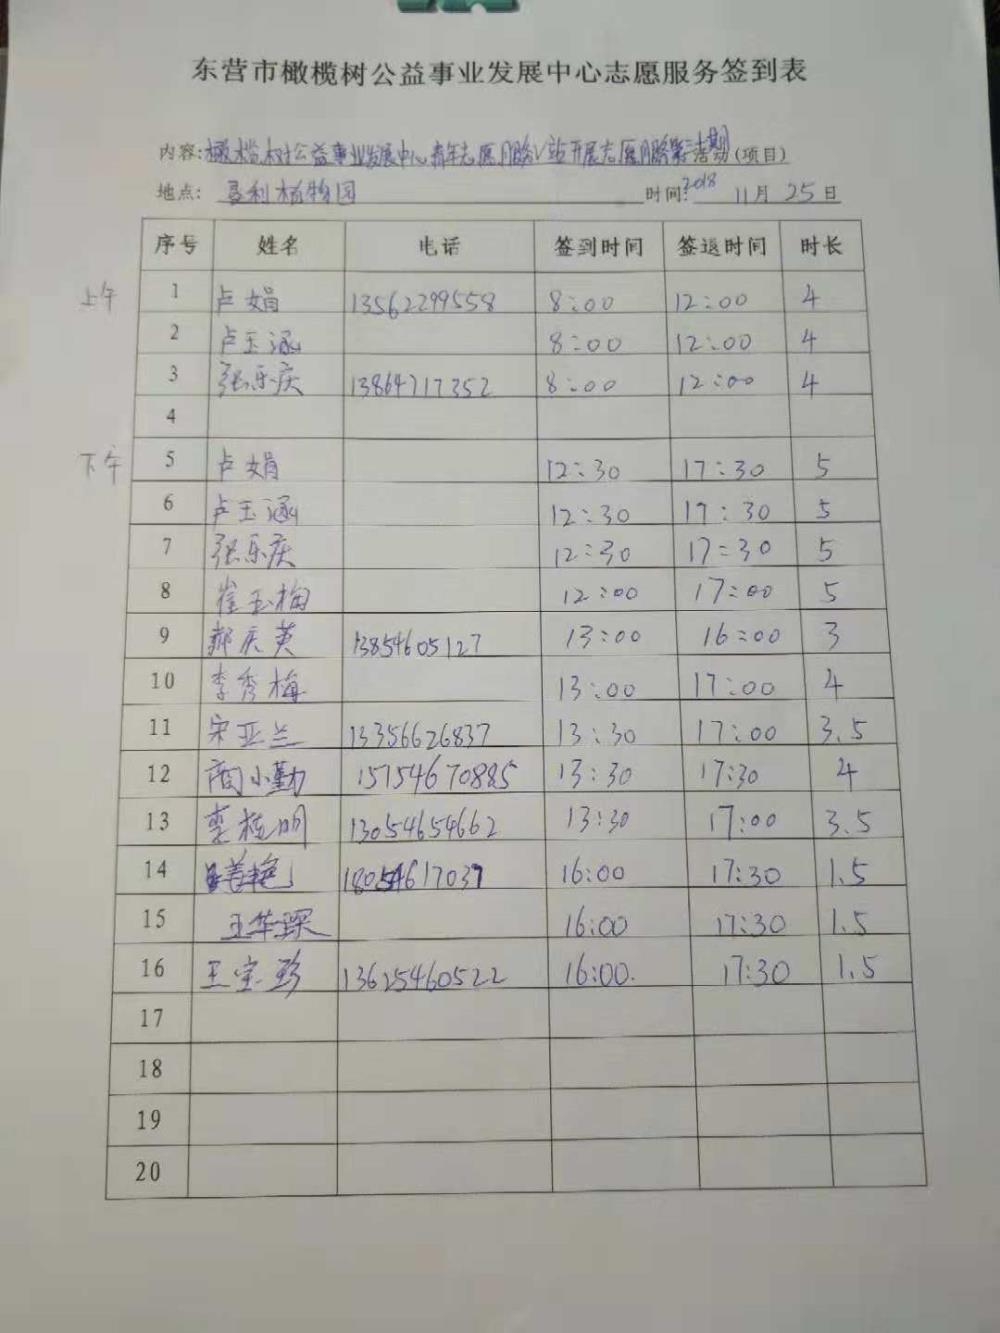 东营市橄榄树公益事业发展中心志愿服务签到表
内容:橄榄树公益事业发展中心青年志愿服务V站开展志愿服务第十期活动(项目)
地点: 垦利植物园 时间: 2018 11月25日
序号 姓名 电话 签到时间 签退时间 时长
上午 1 卢娟 13562299558 8:00 12:00 4
2 卢玉涵 8:00 12:00 4
3 张乐庆 13864717352 8:00 12:00 4
4
下午 5 卢娟 12:30 17:30 5
6 卢玉涵 12:30 17:30 5
7 张乐庆 12:30 17:30 5
8 崔玉梅 12:00 17:00 5
9 郝庆英 13854605127 13:00 16:00 3
10 李秀梅 13:00 17:00 4
11 宋亚兰 13356626837 13:30 17:00 3.5
12 商小勤 15154670885 13:30 17:30 4
13 李桂明 13054654662 13:30 17:00 3.5
14 姜艳 18054617037 16:00 17:30 1.5
15 王华琛 16:00 17:30 1.5
16 王宝珍 13625460522 16:00. 17:30 1.5
17
18
19
20